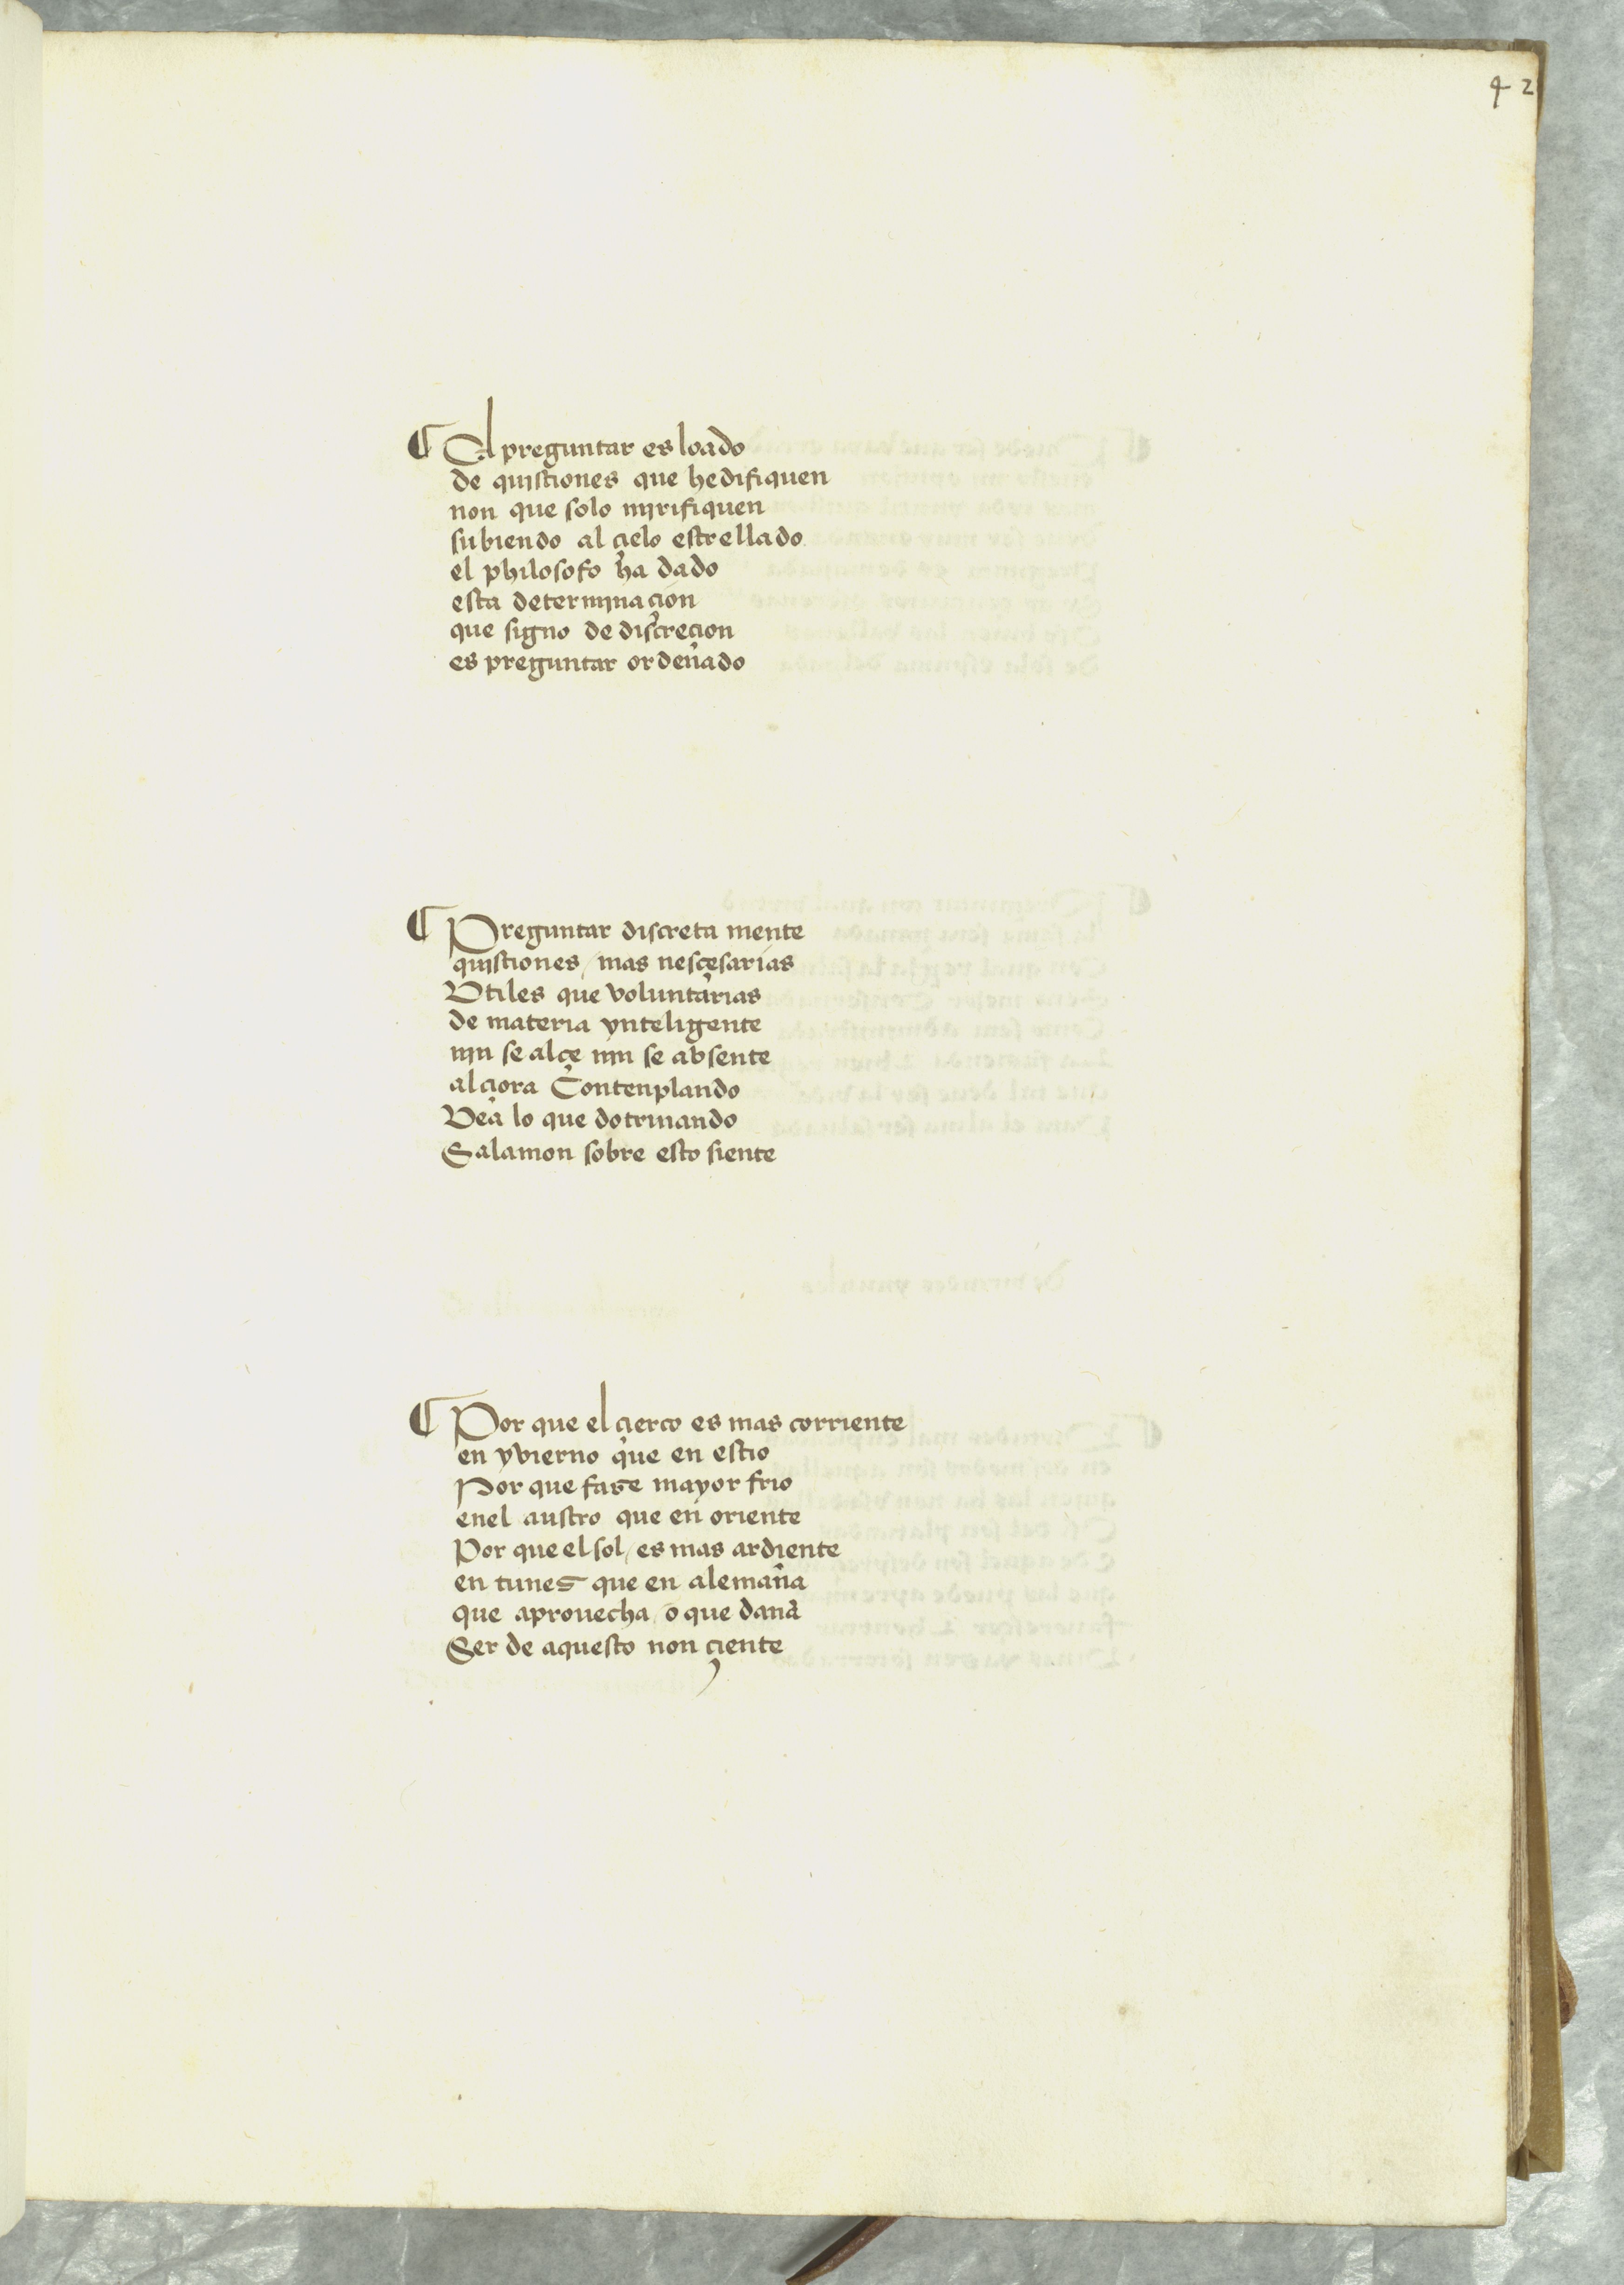 42
¶ El preguntar es loado
de quistiones que hedifiquen
non que solo mirifiquen
subiendo al cielo estrellado
el philosofo ha dado
esta determinaçion
que signo de discreçion
es preguntar ordenado
¶ Preguntar discreta mente
quistiones / mas nesçesarias
Vtiles que voluntarias
de materia ynteligente
nin se alçe nin se absente
al çiora Contenplando
Vea lo que dotrinando
Salamon sobre esto siente
¶ Por que el çierco es mas corriente
en yvierno que en estio
Por que faze mayor frio
enel austro que en oriente
Por que el sol / es mas ardiente
en tunez que en alemaña
que aprouecha / o que daña
Ser de aquesto non çiente